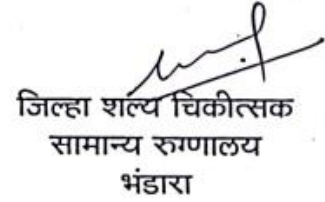 जिल्हा शल्य चिकीत्सक
सामान्य रुग्णालय
भंडारा